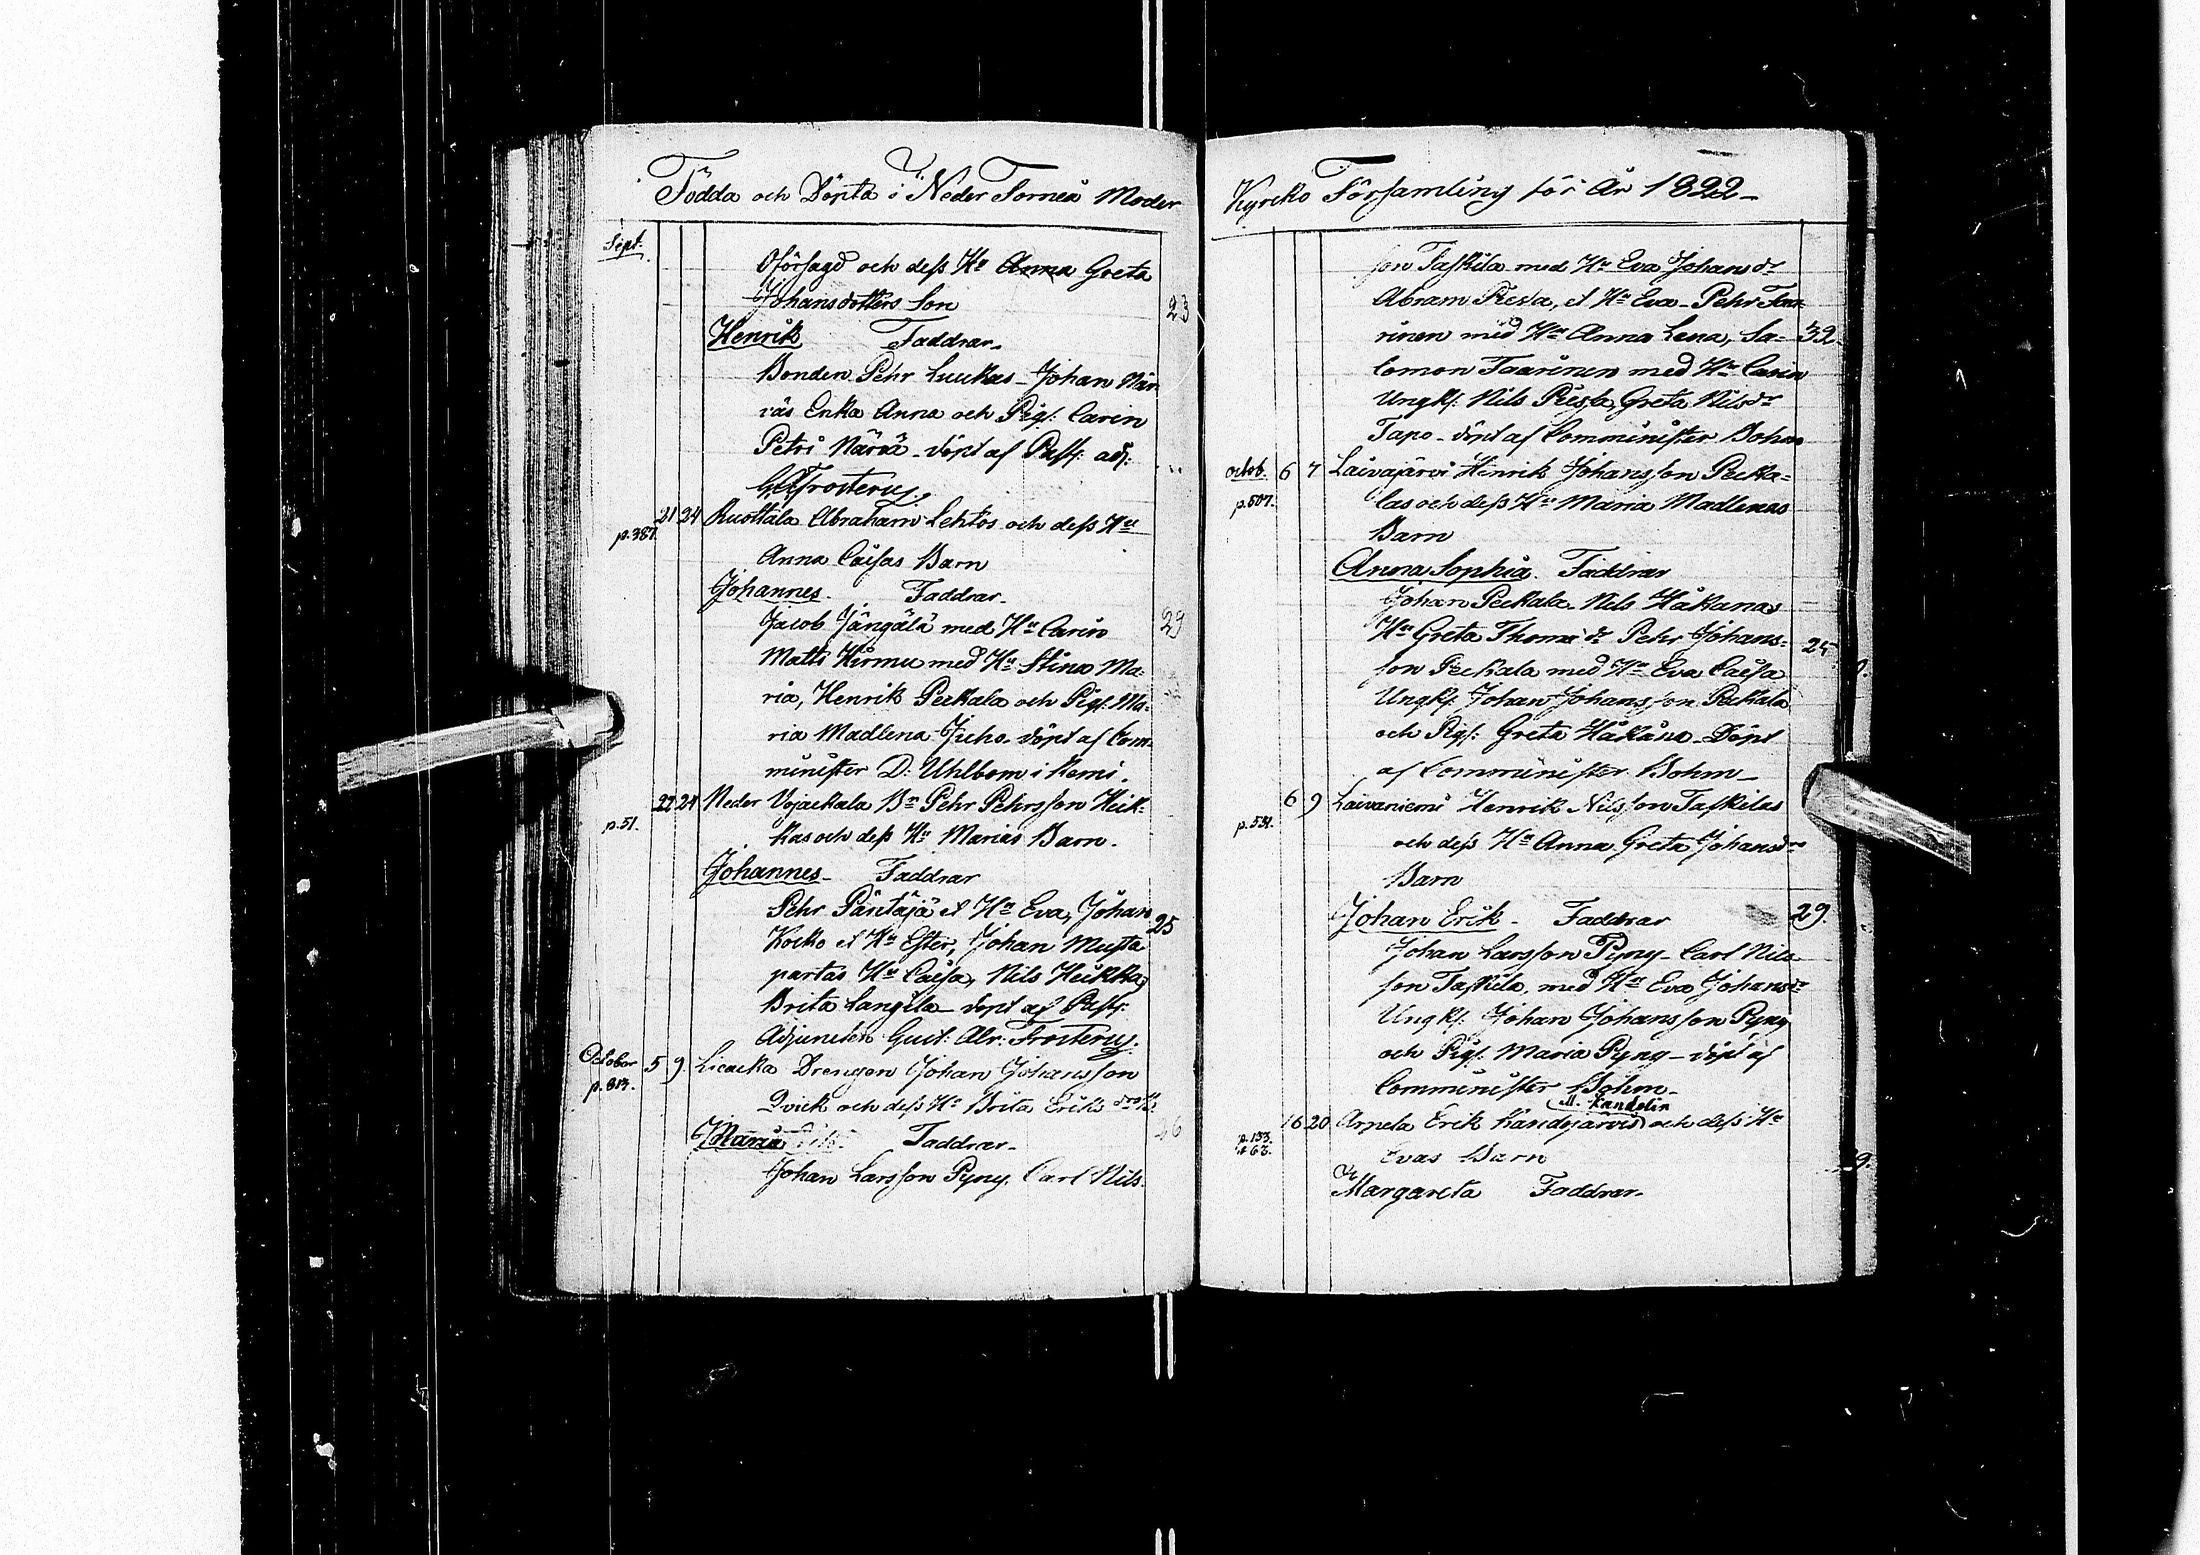 Födda och Döpta i Neder Torneå Moder
Sept.
Oförsagd och dess Hu Anna Greta
Johansdotters Son 23
Henrik Faddrar.
Bonden Pehr Luukas Johan När
väs Enka Anna och Pig. Carin
Petri Närvä döpt af Past. adj.
G. A. Frosterus.
p. 387. 21 24 Ruottala Abraham Lehtos och dess Hu
Anna Caisas Barn
Johannes. Faddrar.
Jacob Jängälä med Hu Carin 29
Matts Hirmu med Hu Stina Ma-
ria, Henrik Peckala och Pig. Ma-
ria Madlena Juho. döpt af Com-
minister D. Uhlbom i Kemi.
p. 51. 22 24 Neder Vojackala Bn Pehr Pehrsson Heik-
kas och dess Hu Marias Barn.
Johannes Faddrar
Pehr Päntäjä et Hu Eva, Johan 25
Kocko et Hu Ester, Johan Musta
partas Hu Caisa, Nils Heikka
Brita Langila döpt af Past.
Adjuncten Gust. Abr. Frosterus.
October p. 813. 5 9 Liacka Drengen Johan Johansson
Qvick och dess Hu Brita Eriks drs B.
Maria Faddrar. 26
Johan Larsson Pyny. Carl Nils-
Kyrcko Församling för År 1822
son Taskila med Hu Eva Johansdr
Abram Piesa, et Hu Eva Pehr Taa
rinen med Hu Anna Lena, Sa- 32.
lomon Taarinen med Hu Carin
Ungk. Nils Piesa, Greta Nilsdr
Tapo. döpt af Comminister Bohm
octob. p. 507. 6 7 Laivajärvi Hinrik Johansson Pecka-
las och dess Hu Maria Madlenas
Barn
Anna Sophia. Faddrar
Johan Peckala. Nils Håkanas
Hu Greta Thomædr Pehr Johans- 24
son Peckala med Hu Eva Caisa
Ungk. Johan Johansson Peckala
och Pig. Greta Håkana. Döpt
af Comminister Bohm
p. 531. 6 9 Laivaniemi Henrik Nilsson Taskilas
och dess Hu Anna Greta Johansdrs
Barn
Johan Erik Faddrar 29.
Johan Larsson Pyny Carl Nils
son Taskila, med Hu Eva Johansdr
Ungk. Johan Johansson Pyny
och Pig. Maria Pyny döpt af
Comminister Bohm.
M. Kandelin
p. 133. 463. 16 20 Arpela Erik Kandejärvis och dess Hu
Evas Barn
Margareta Faddrar.